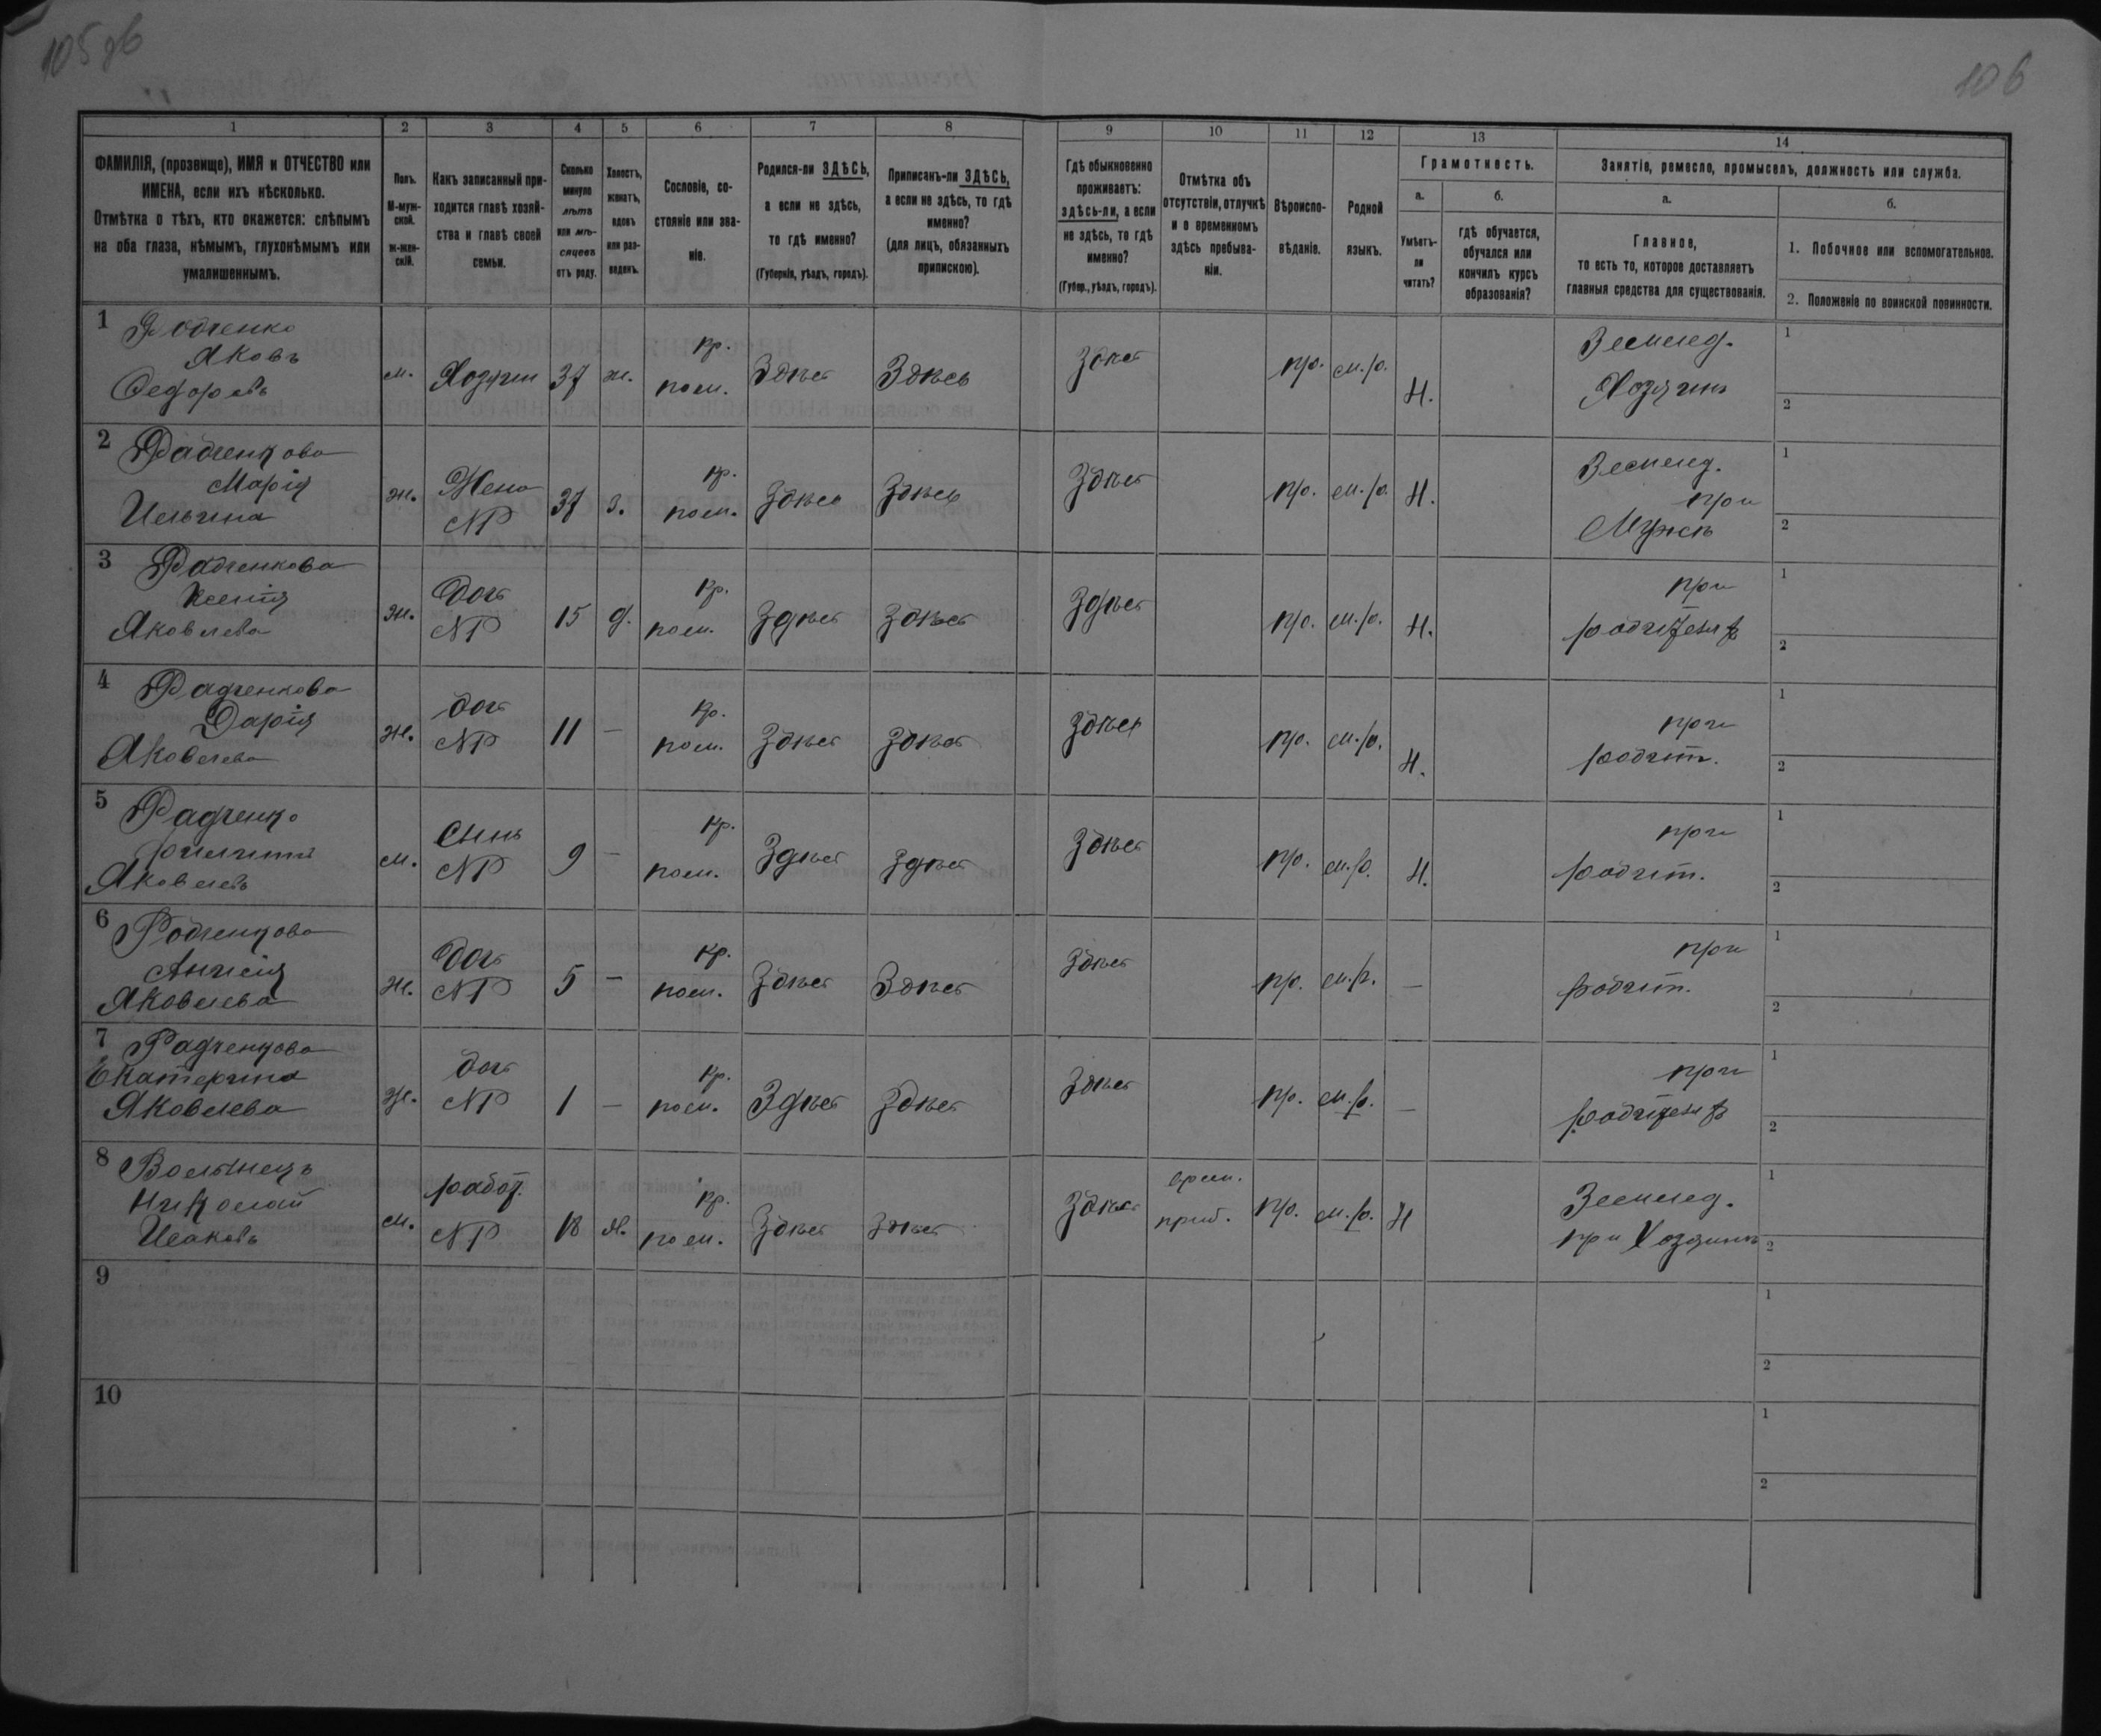 105 об
106
1
2
3
4
5
6
7
8
9
10
11
12
13
14
ФАМИЛІЯ, (прозвище), ИМЯ и ОТЧЕСТВО или
ИМЕНА, если ихъ нѣсколько.
Отмѣтка о тѣхъ, кто окажется: слѣпымъ
на оба глаза, нѣмымъ, глухонѣмымъ или
умалишеннымъ.
Полъ.
М-муж-
ской.
Ж-жен-
скій.
Какъ записанный при-
ходится главѣ хозяй-
ства и главѣ своей
семьи.
Сколько
минуло
лѣтъ
или мѣ-
сяцевъ
отъ роду.
Холостъ,
женатъ,
вдовъ
или раз-
веденъ.
Сословіе, со-
стояніе или зва-
ніе.
Родился-ли ЗДѢСЬ,
а если не здѣсь,
то гдѣ именно?
(Губернія, уѣздъ, городъ).
Приписанъ-ли ЗДѢСЬ,
а если не здѣсь, то гдѣ
именно?
(для лицъ, обязанныхъ
припискою).
Гдѣ обыкновенно
проживаетъ:
здѣсь-ли, а если
не здѣсь, то гдѣ
именно?
(Губер., уѣздъ, городъ).
Отмѣтка объ
отсутствіи, отлучкѣ
и о временномъ
здѣсь пребыва-
ніи.
Вѣроиспо-
вѣданіе.
Родной
языкъ.
Грамотность.
а.
Умѣетъ-
ли
читать?
б.
гдѣ обучается,
обучался или
кончилъ курсъ
образованія?
Занятіе, ремесло, промыселъ, должность или служба.
а.
Главное,
то есть то, которое доставляетъ
главныя средства для существованія.
б.
1. Побочное или вспомогательное.
2. Положеніе по воинской повинности.
1 Родченко
Яковъ
Федоровъ
м. Хозяин 37 ж. кр. пом. Здѣсь Здѣсь Здѣсь пр. м.р. Н. Землед. Хозяинъ 1 2
2 Радченкова
Марія
Ильина
ж. Жена NP 37 з. кр. пом. Здѣсь Здѣсь Здѣсь пр. м.р. Н. Землед. при Мужѣ 1 2
3 Радченкова
Ксенія
Яковлева
ж. Доч NP 15 д. кр. пом. Здѣсь Здѣсь Здѣсь пр. м.р. Н. при родителѣ 1 2
4 Радченкова
Дарія
Яковлева
ж. доч NP 11 — кр. пом. Здѣсь Здѣсь Здѣсь пр. м.р. Н. при родит. 1 2
5 Радченко
Яковлевъ
м. сынъ NP 9 — кр. пом. Здѣсь Здѣсь Здѣсь пр. м.р. Н. при родит. 1 2
6 Родченкова
Анисія
Яковлева
ж. Доч NP 5 — кр. пом. Здѣсь Здѣсь Здѣсь пр. м.р. — при родит. 1 2
7 Радченкова
Екатерина
Яковлева
ж. доч NP 1 — кр. пом. Здѣсь Здѣсь Здѣсь пр. м.р. — при родителѣ 1 2
8 Волынецъ
Николай
Исаковъ
м. работ. NP 18 х. кр. пом. Здѣсь Здѣсь Здѣсь врем. приб. пр. м.р. Н Землед. при Хозяинѣ 1 2
9 1 2
10 1 2